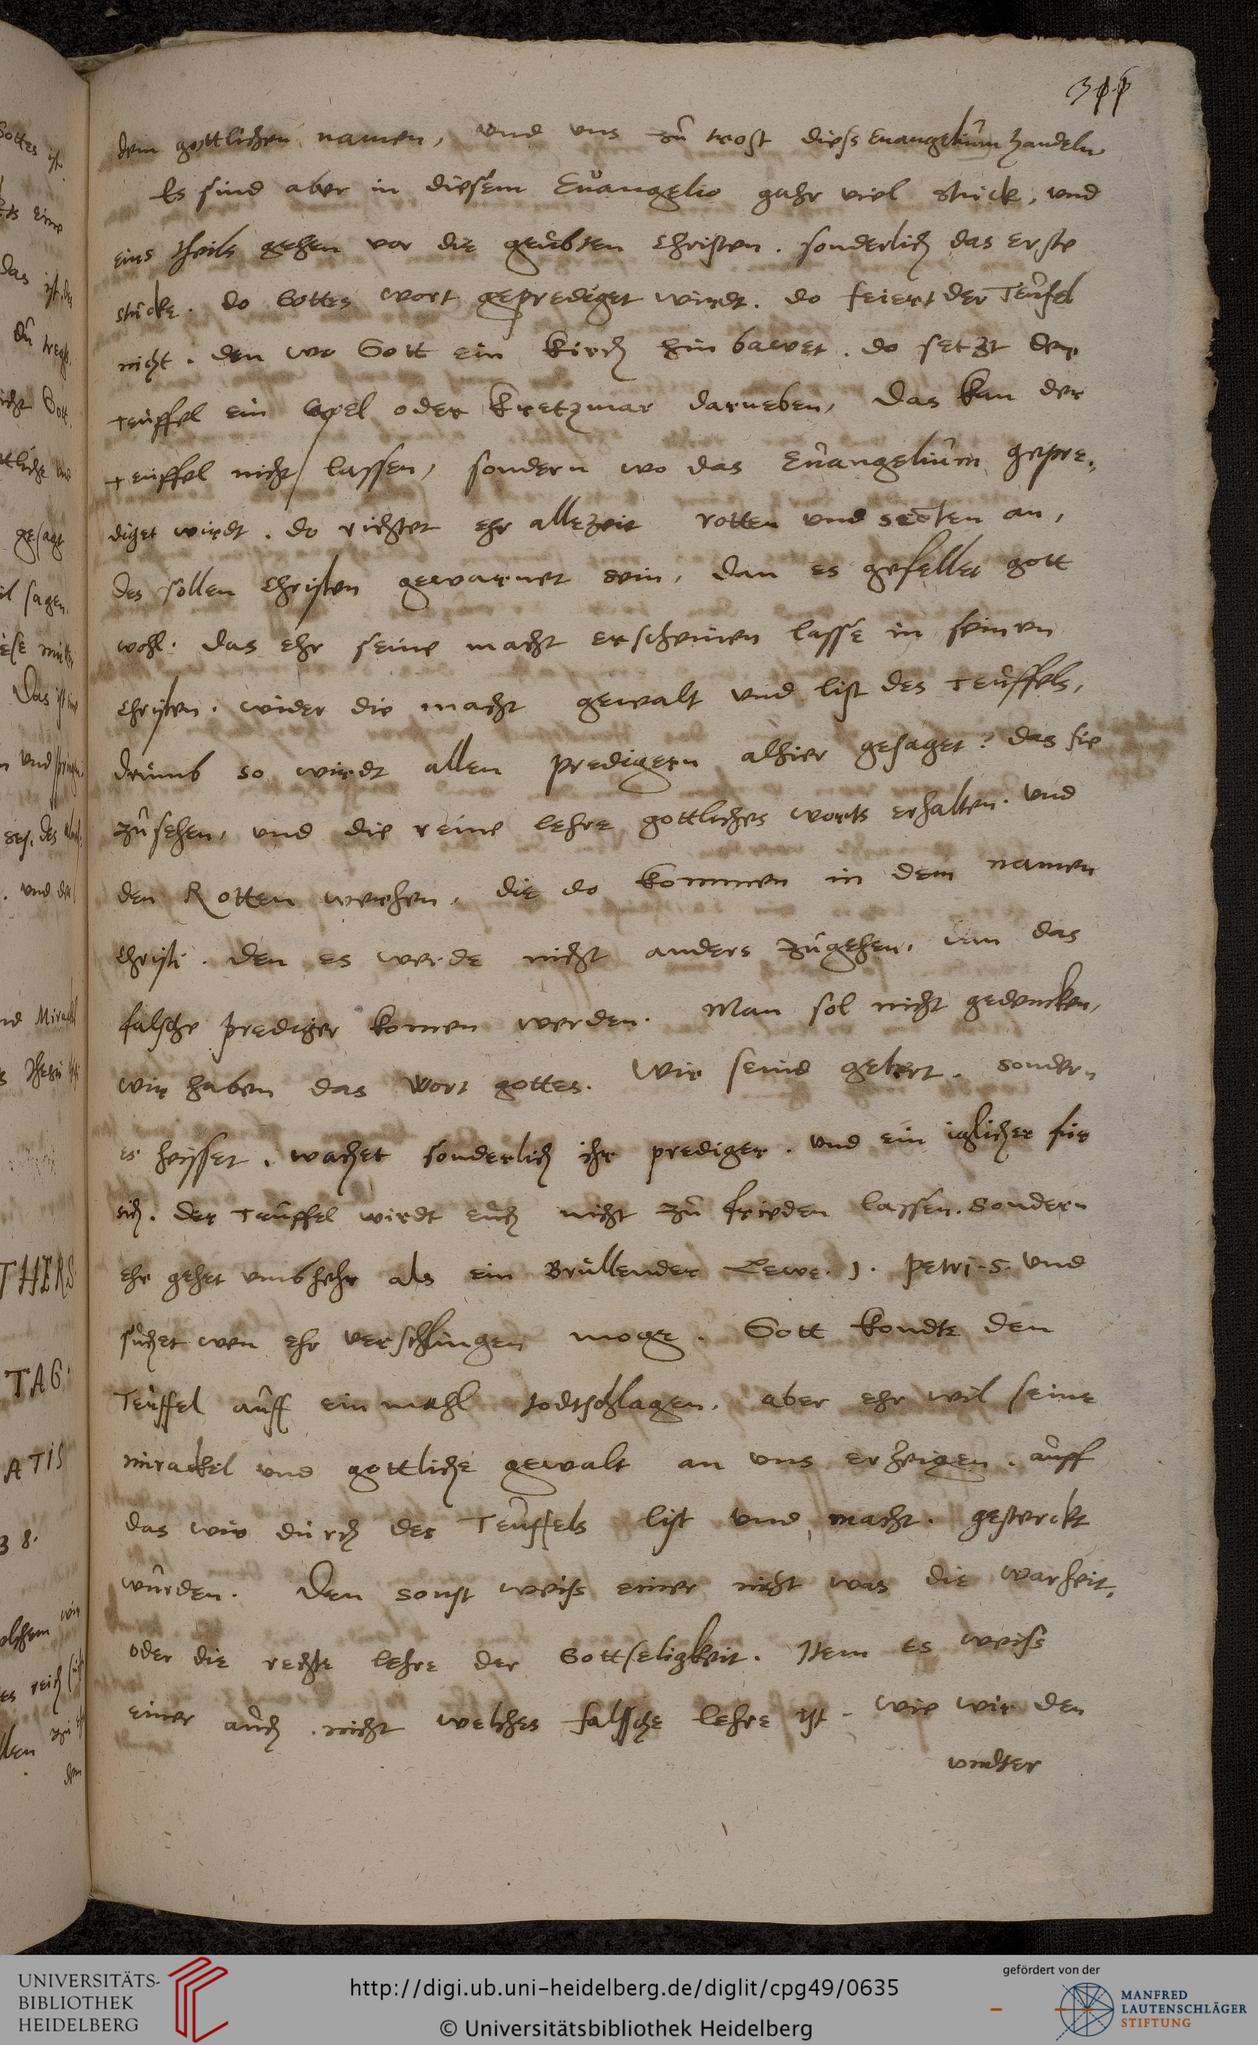 dem gottlichen namen, und uns zu trost diess Euangelium handeln
Es sind aber in diesem Euangelio gahr viel stuck, und
eins theils gehen vor die geubten Christen. sonderlich das erste
stucke. do Gottes wort geprediget wirdt. do feiert der Teufel
nicht. den wo Gott ein Kirch hin bawet. do setzt der
Teuffel ein Capel oder Kretzmar darneben, Das kan der
Teuffel nicht lassen, sondern wo das Euangelium gepre,
diget wirdt. do richtet ehr allezeit rotten und secten an,
des sollen Christen gewarnet sein, dan es gefellet gott
wohl. das ehr seine macht erscheinen lasse in seinen
Christen. wider die macht gewalt und list des Teuffels,
drumb so wirdt allen predigern alhier gesaget? das sie
zusehen, und die reine lehre gottliches worts erhalten. und
den Rotten wehren, die do kommen in dem namen
Christi. den es werde nicht anders zugehen, den das
falsche prediger komen werden. Man sol nicht gedencken,
wir haben das Wort gottes. Wir seind gelert. sondern
es heisset. wachet sonderlich ihr prediger. und ein iglicher fur
sich. der Teuffel wirdt euch nicht zu frieden lassen. sondern
ehr gehet umbhehr als ein Brullender Lewe. 1. Petri. 5. und
suchet wen ehr verschlingen moge. Gott kondte den
Teuffel auff ein mahl todtschlagen. aber ehr wil seine
mirackel und gottliche gewalt an uns erzeigen. auff
das wir durch des Teuffels list und macht. gesterckt
wurden. Den sonst weiss einer nicht was die warheit,
oder die rechte lehre der Gottseligkeit. Item es weiss
einer auch nicht welches falsche lehre ist. wie wir den
undter
UNIVERSITÄTS-
BIBLIOTHEK
HEIDELBERG
http://digi.ub.uni-heidelberg.de/diglit/cpg49/0635
© Universitätsbibliothek Heidelberg
gefördert von der
MANFRED
LAUTENSCHLÄGER
STIFTUNG